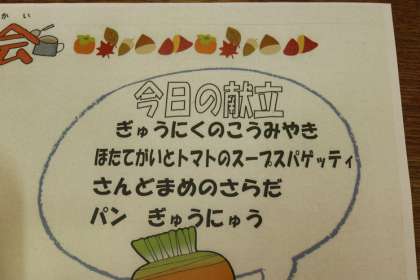 かい
会
今日の献立
ぎゅうにくのこうみやき
ほたてがいとトマトのスープスパゲッティ
さんどまめのさらだ
パン ぎゅうにゅう